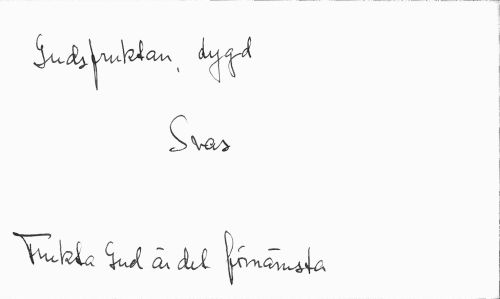 Gudsfruktan, dygd
Svas
Frukta Gud är det förnämsta